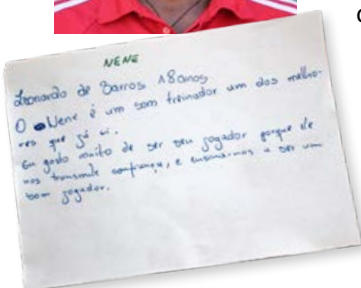 NENE
Leonardo de Barros 18anos
O Nene é um bom treinador um dos melho-
res que já vi.
Eu gosto muito de ser seu jogador porque ele
nos transmite confiança, e ensina-nos a ser um
bom jogador.